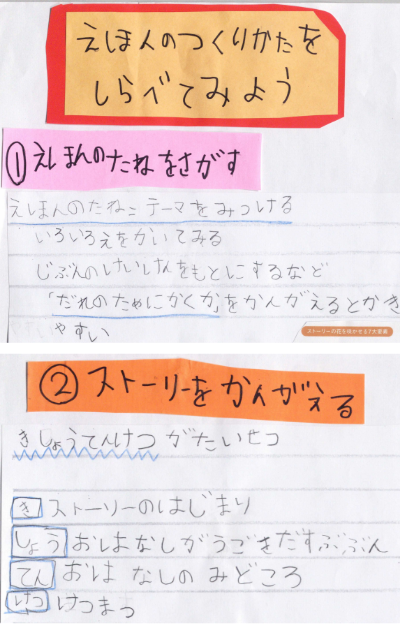 えほんのつくりかたを
しらべてみよう
① えほんのたねをさがす
えほんのたね=テーマをみつける
いろいろえをかいてみる
じぶんのけいけんをもとにするなど
「だれのためにかくか」をかんがえるとかき
やすい
② ストーリーをかんがえる
きしょうてんけつがたいせつ
き ストーリーのはじまり
しょう おはなしがうごきだすぶぶん
てん おはなしのみどころ
けつ けつまつ